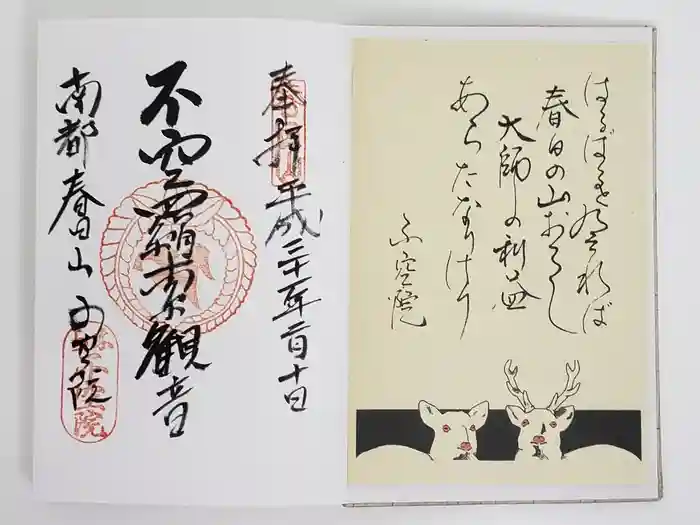 はるばる れば
春日の山おろし
大師の利益
あらたなりけり
不空院
奉拝 平成三十一年二月十日
不空羂索観音
南都春日山 不空院